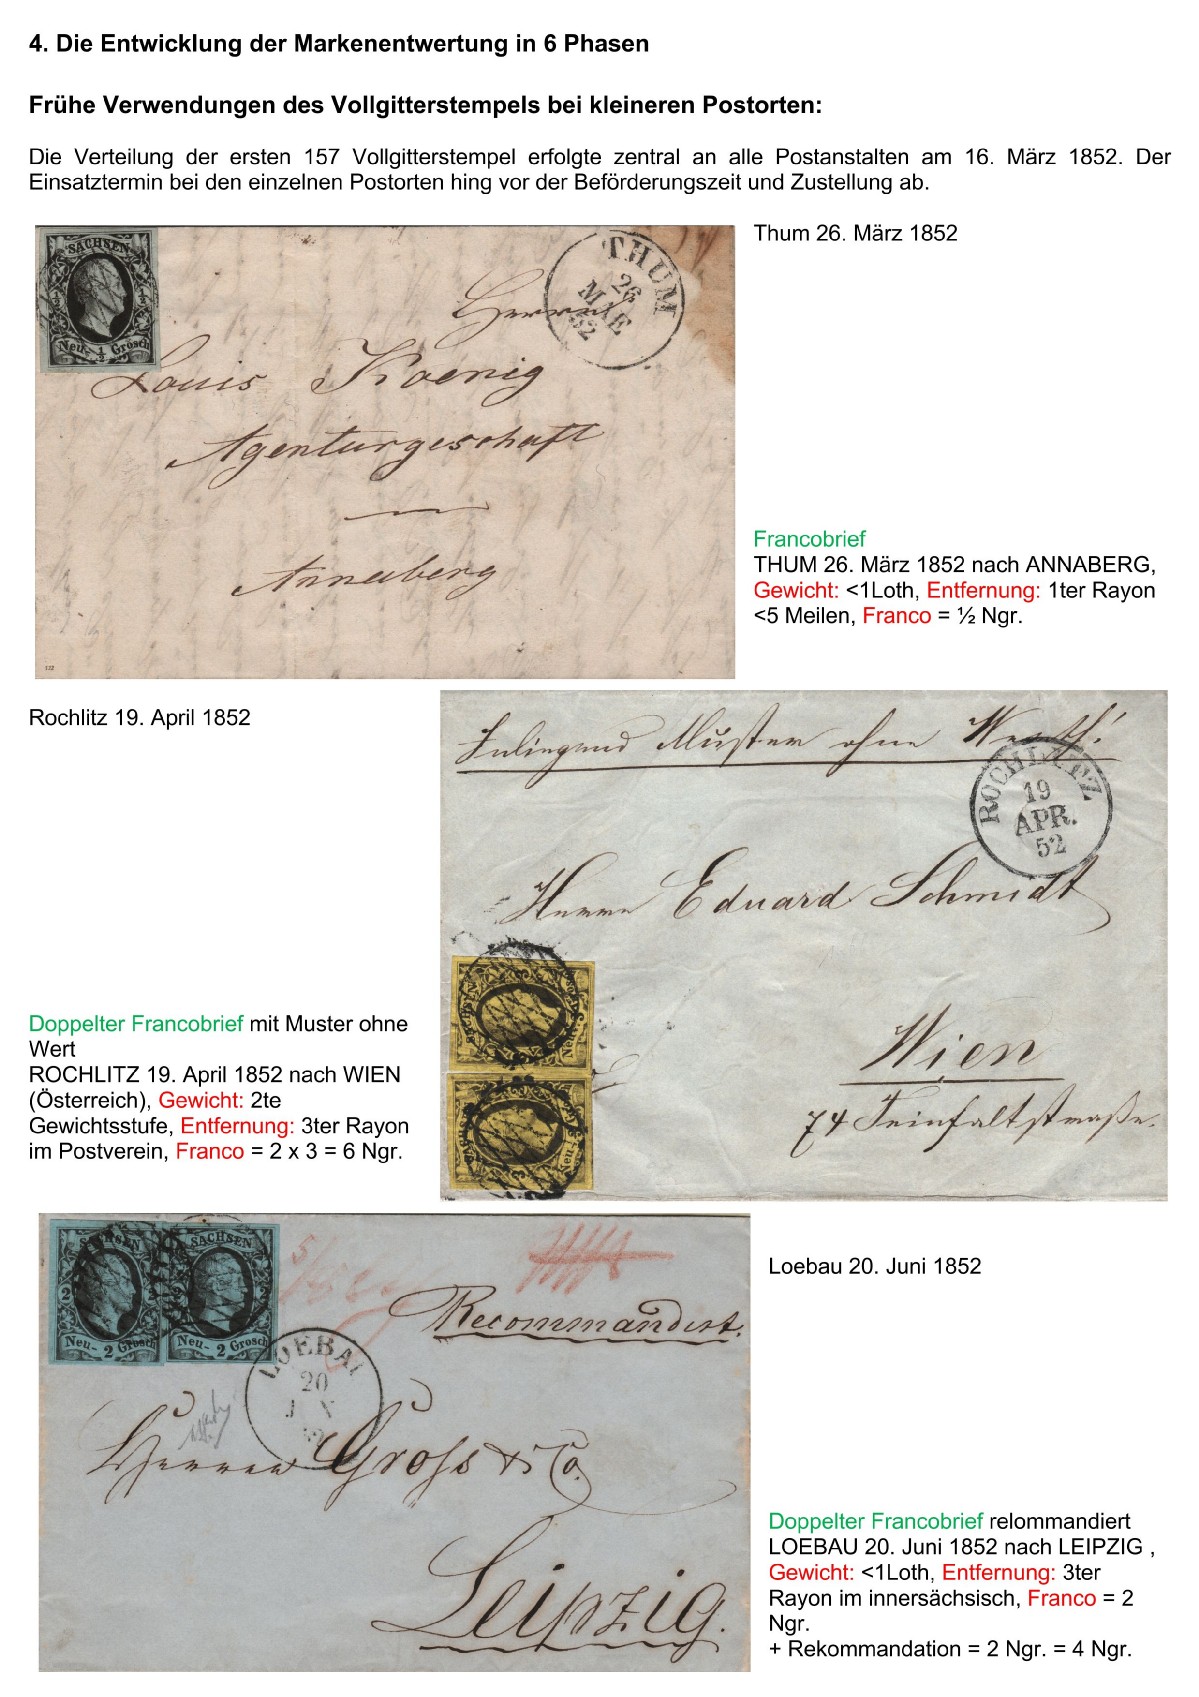 4. Die Entwicklung der Markenentwertung in 6 Phasen
Frühe Verwendungen des Vollgitterstempels bei kleineren Postorten:
Die Verteilung der ersten 157 Vollgitterstempel erfolgte zentral an alle Postanstalten am 16. März 1852. Der
Einsatztermin bei den einzelnen Postorten hing vor der Beförderungszeit und Zustellung ab.
Thum 26. März 1852
SACHSEN
½ ½
Neu- ½ Grosch
THUM
26
MAE
52
Herrn
Louis Koenig
Agenturgeschaft
Annaberg
122
Francobrief
THUM 26. März 1852 nach ANNABERG,
Gewicht: <1Loth, Entfernung: 1ter Rayon
<5 Meilen, Franco = ½ Ngr.
Rochlitz 19. April 1852
Inliegend Muster ohne Werth!
ROCHLITZ
19
APR.
52
Herrn Eduard Schmidt
Wien
74 Teinfaltstraße.
SACHSEN
Neu-
Neu-
Doppelter Francobrief mit Muster ohne
Wert
ROCHLITZ 19. April 1852 nach WIEN
(Österreich), Gewicht: 2te
Gewichtsstufe, Entfernung: 3ter Rayon
im Postverein, Franco = 2 x 3 = 6 Ngr.
SACHSEN
2
Neu- 2 Grosch
SACHSEN
2
Neu- 2 Grosch
Loebau 20. Juni 1852
Recommandirt.
LOEBAU
20
Herren Gross & Co.
Leipzig.
Doppelter Francobrief relommandiert
LOEBAU 20. Juni 1852 nach LEIPZIG ,
Gewicht: <1Loth, Entfernung: 3ter
Rayon im innersächsisch, Franco = 2
Ngr.
+ Rekommandation = 2 Ngr. = 4 Ngr.